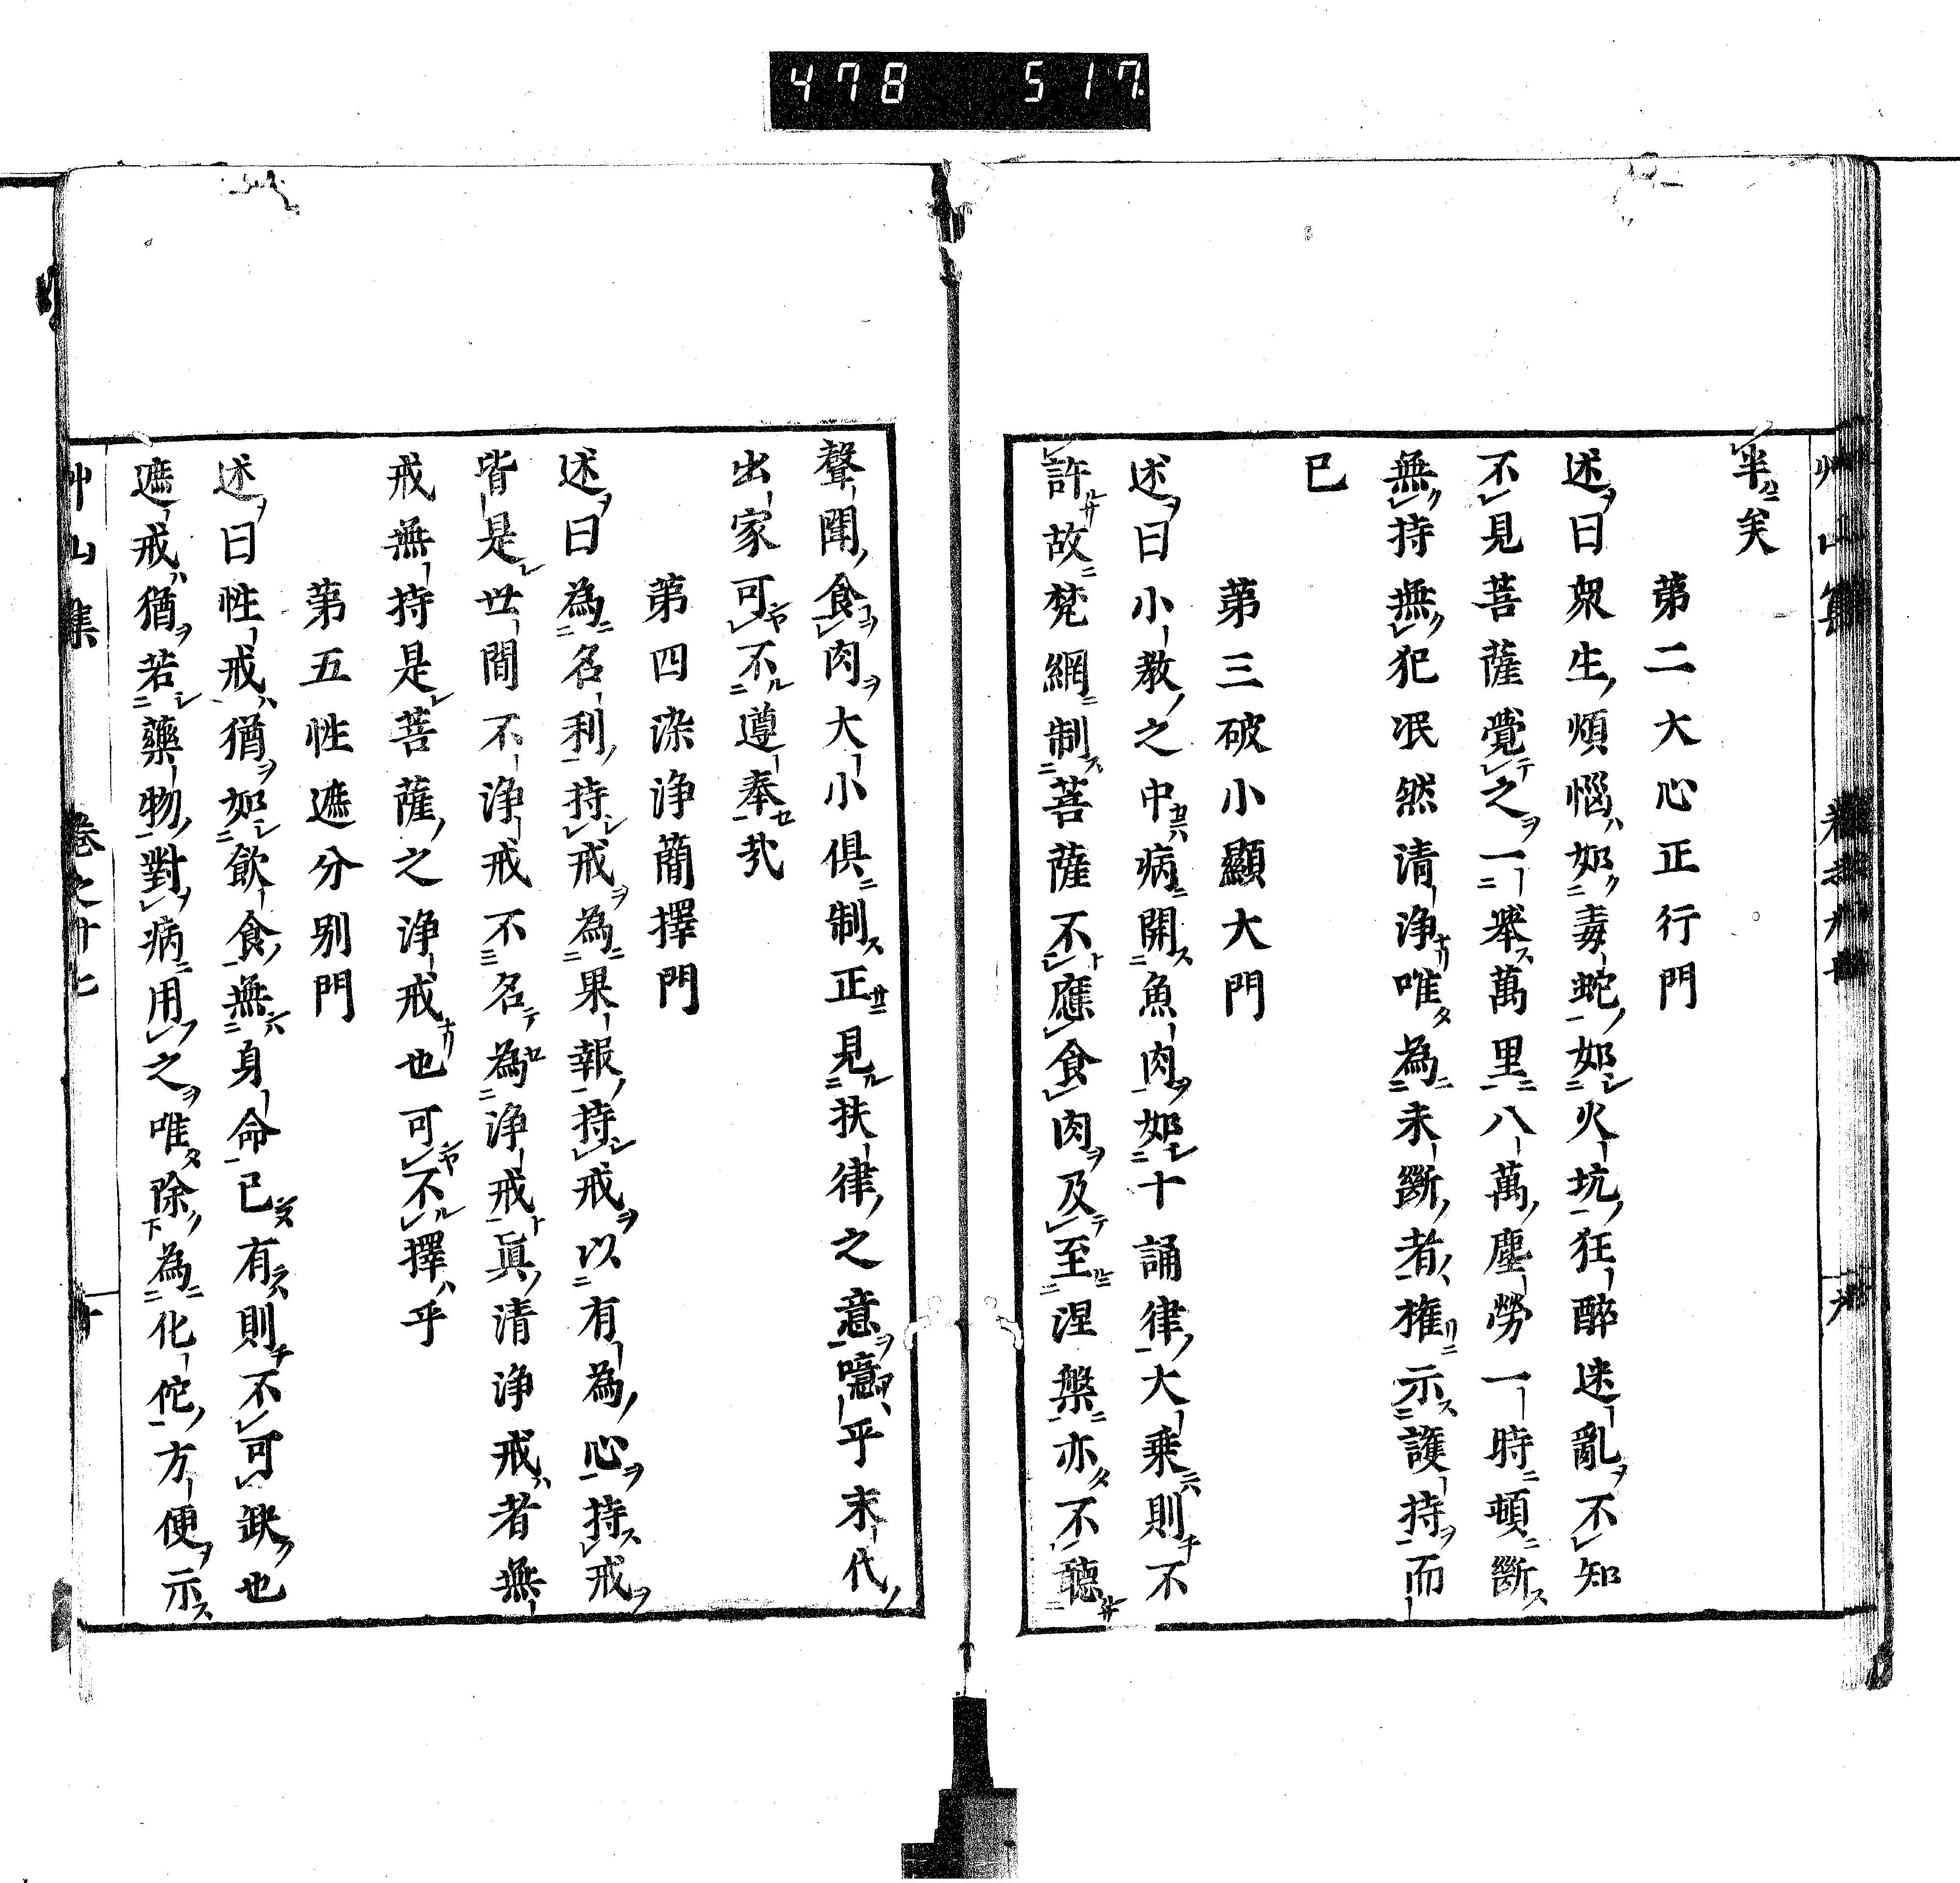 478 517
罕矣
第二大心正行門
述曰衆生煩惱如毒蛇如火坑狂醉迷亂不知
不見菩薩覺之一舉萬里八萬塵勞一時頓斷
無持無犯泯然清浄唯為未斷者権示護持而
已
第三破小顯大門
述曰小教之中病開魚肉如十誦律大乗則不
許故梵網制菩薩不應食肉及至涅槃亦不聽
聲聞食肉大小俱制正見扶律之意噫乎末代
出家可不遵奉哉
第四染浄簡擇門
述曰為名利持戒為果報持戒以有為心持戒
皆是世間不浄戒不名為浄戒眞清浄戒者無
戒無持是菩薩之浄戒也可不擇乎
第五性遮分别門
述曰性戒猶如飲食無身命已有則不可缺也
遮戒猶若藥物對病用之唯除為化佗方便示
艸山集 巻之十七 十